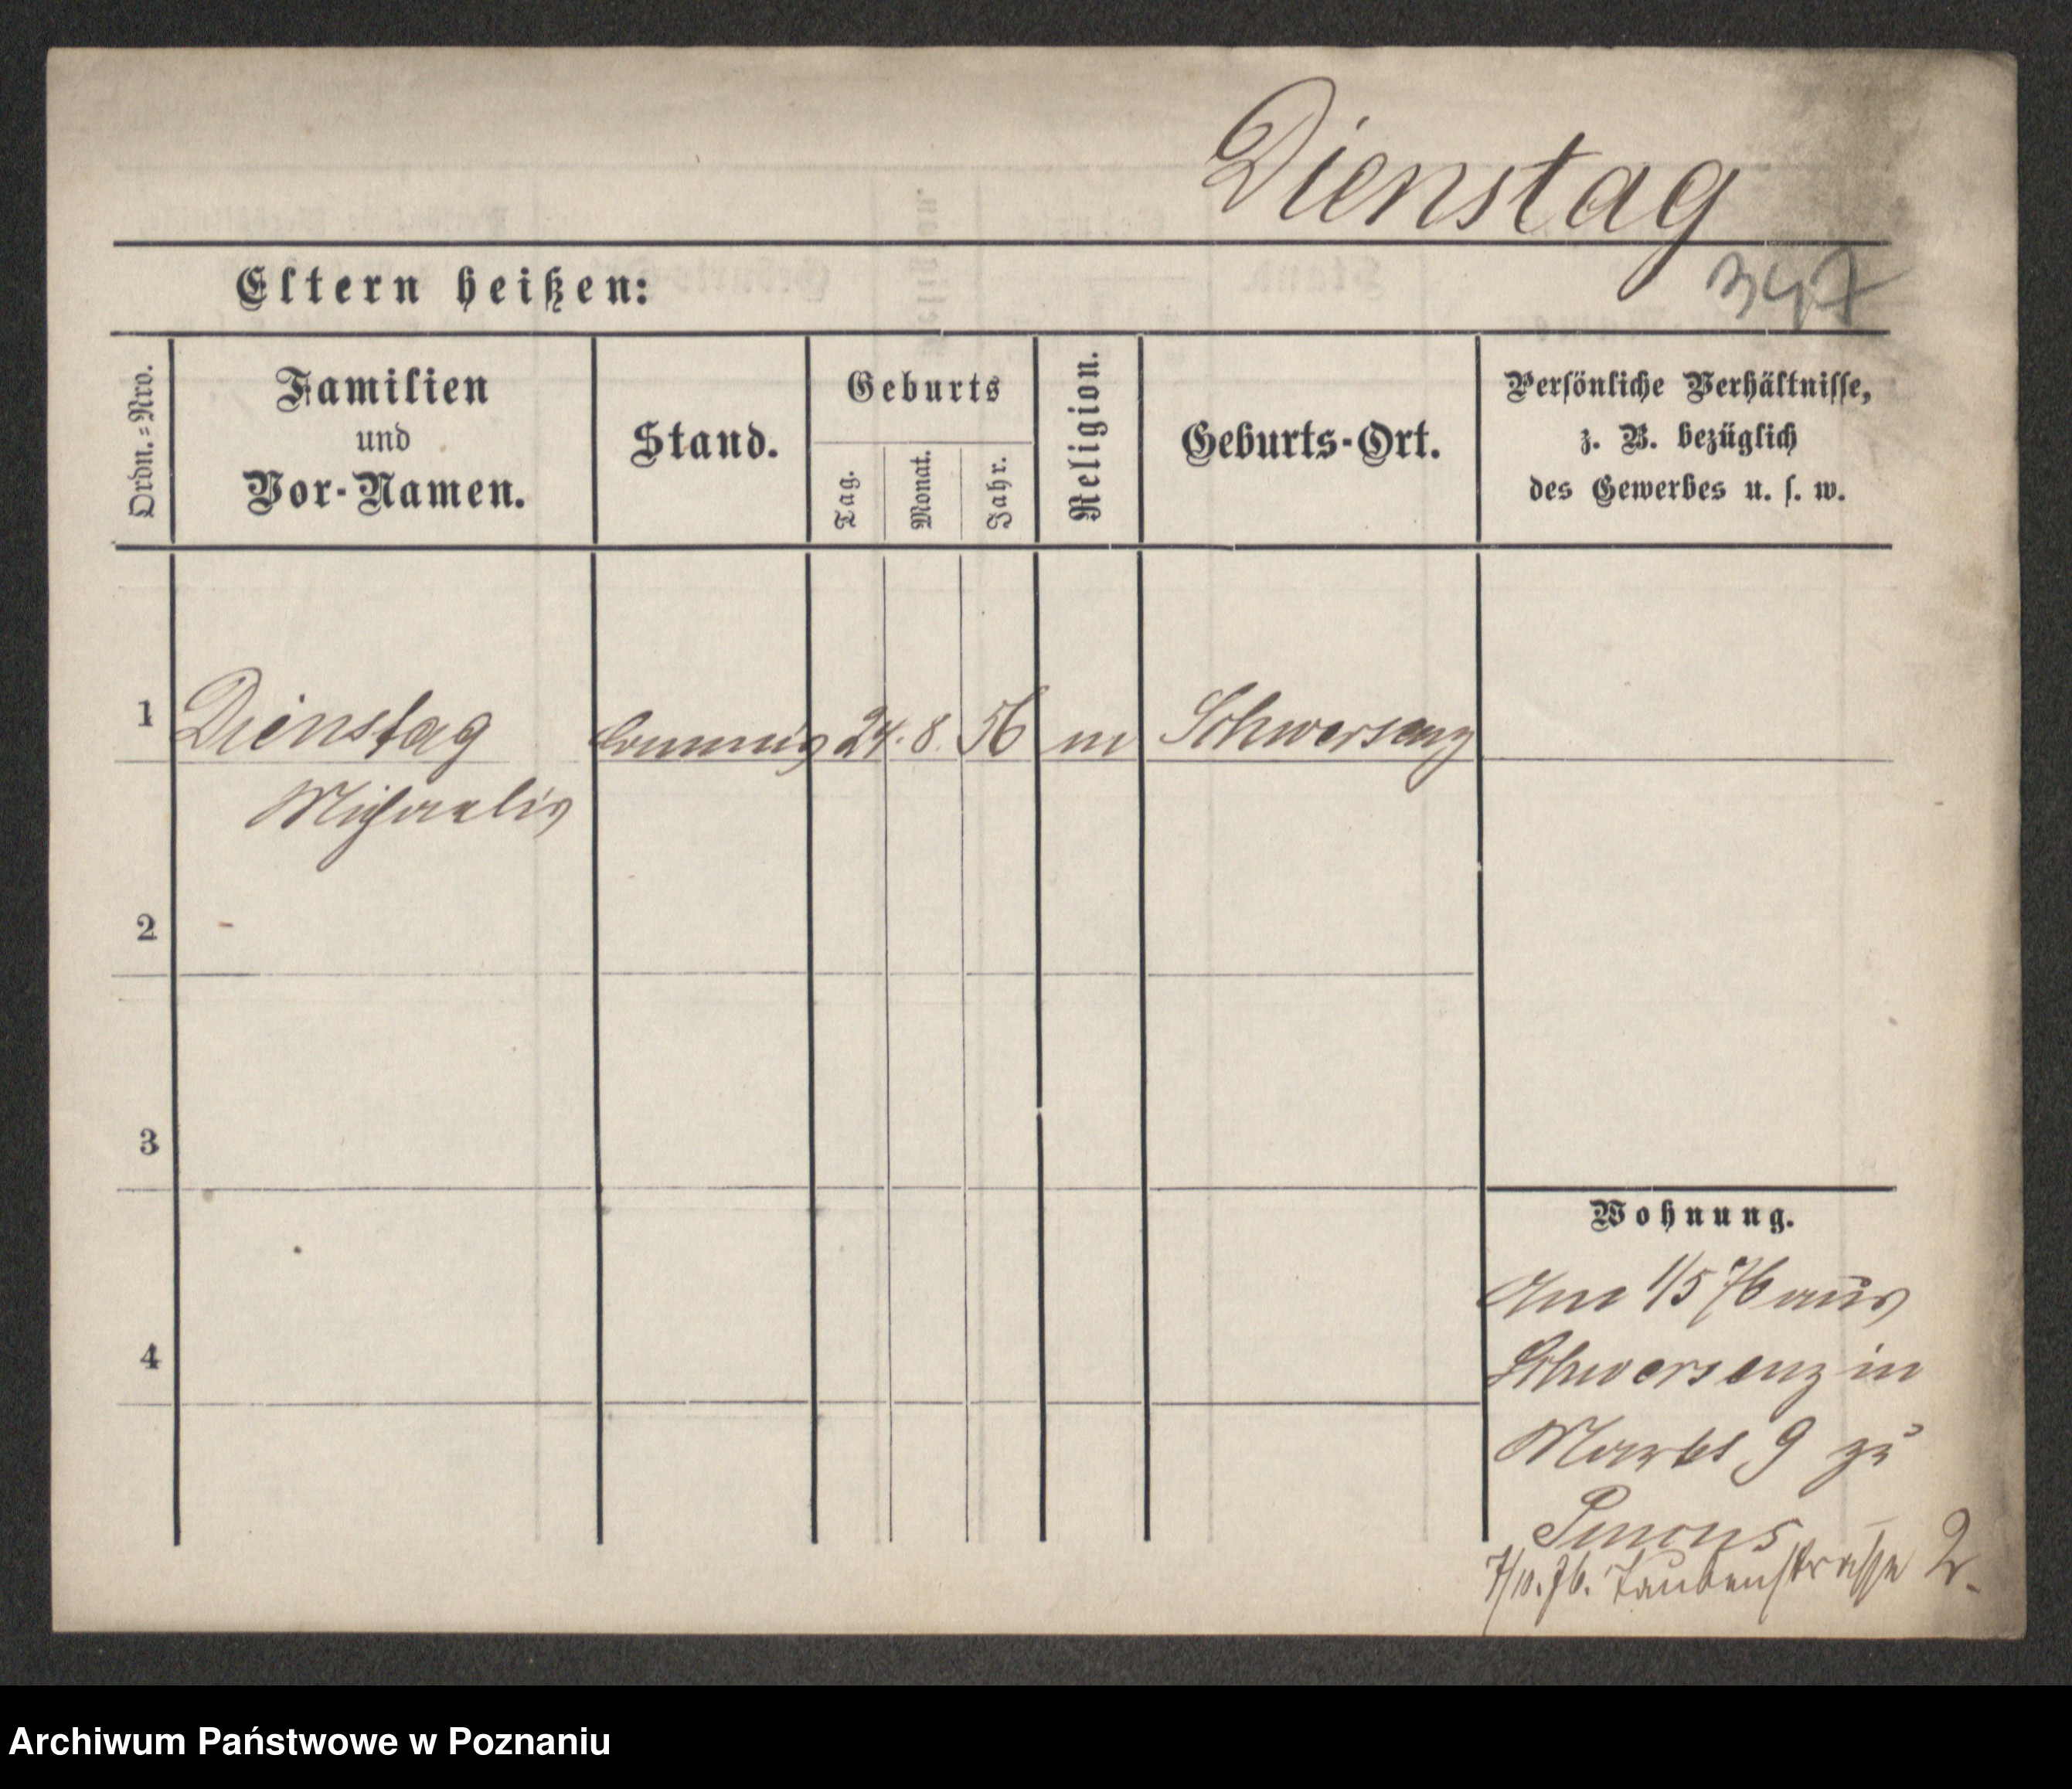 Dienstag
347
Eltern heißen:
Ordn.=Nro.
Familien
und
Vor-Namen.
Stand.
Geburts
Tag.
Monat.
Jahr.
Religion.
Geburts-Ort.
Persönliche Verhältnisse,
z. B. bezüglich
des Gewerbes u. s. w.
1 Dienstag Commis 24. 8. 56 m Schwersenz
Michaelis
2
3
4
Wohnung.
Am 1/5 76 aus
Schwersenz in
Markt 9 zu
7/10. 76. Taubenstrasse 2.
Archiwum Państwowe w Poznaniu